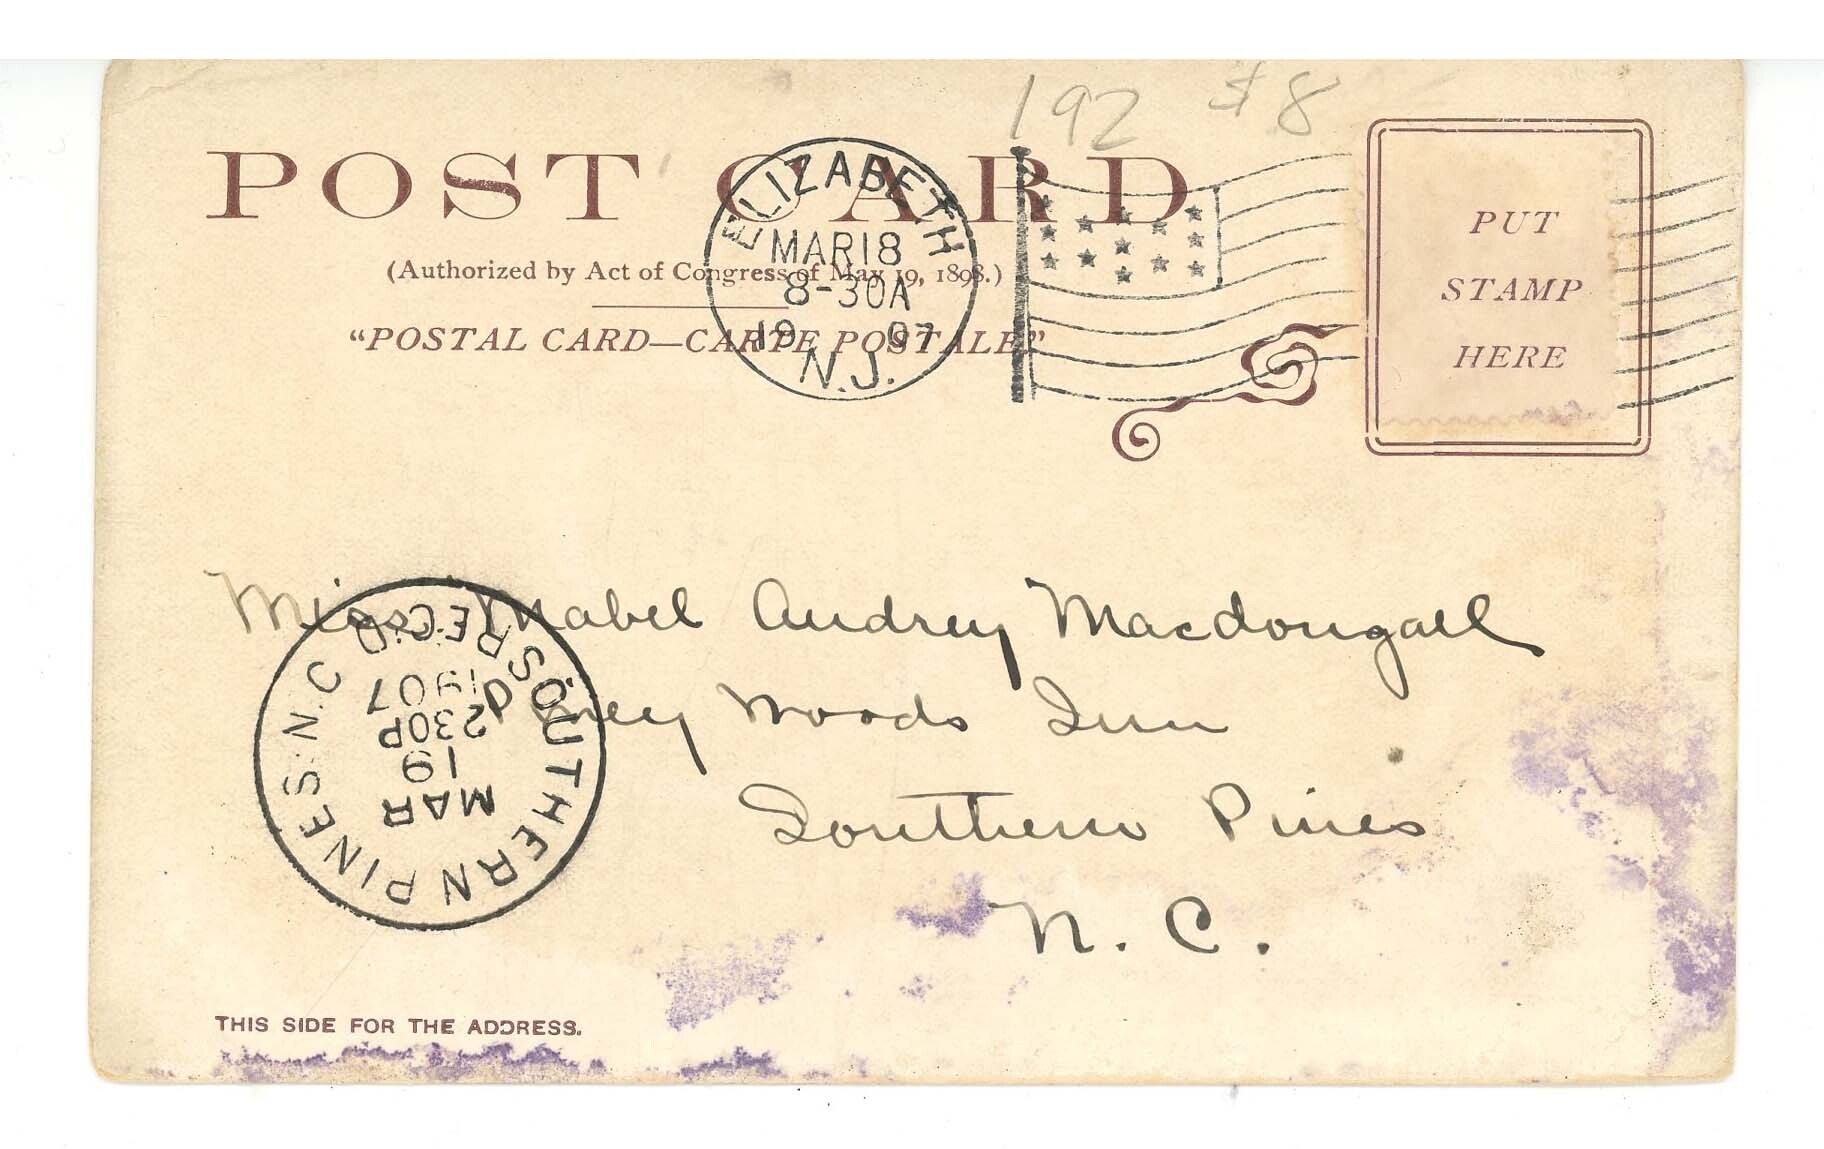 192 $8
POST CARD
(Authorized by Act of Congress of May 19, 1898.)
"POSTAL CARD—CARTE POSTALE"
ELIZABETH
MAR 18
8-30A
1907
N.J.
PUT
STAMP
HERE
Miss Mabel Audrey Macdougall
Piney Woods Inn
Southern Pines
N. C.
SOUTHERN PINES N.C. REC'D.
MAR
19
230P
1907
THIS SIDE FOR THE ADDRESS.